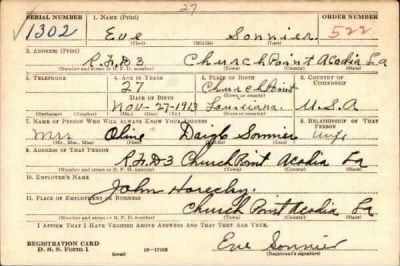 27
SERIAL NUMBER 1. NAME (Print) ORDER NUMBER
1302 Eve Sonnier 522
(First) (Middle) (Last)
2. ADDRESS (Print)
R.F.D3 Church Point Acadia La
(Number and street or R. F. D. number) (Town) (County) (State)
3. TELEPHONE 4. AGE IN YEARS 5. PLACE OF BIRTH 6. COUNTRY OF CITIZENSHIP
27 Church Point
(Town or county)
Nov-27-1913 Louisiana. U.S.A
7. NAME OF PERSON WHO WILL ALWAYS KNOW YOUR ADDRESS 8. RELATIONSHIP OF THAT PERSON
Mrs Daigle Sonnier Wife
(Mr., Mrs., Miss) (First) (Middle) (Last)
9. ADDRESS OF THAT PERSON
R.F.D3 Church Point Acadia La
(Number and street or R. F. D. number) (Town) (County) (State)
10. EMPLOYER'S NAME
John
11. PLACE OF EMPLOYMENT OR BUSINESS
Church Point Acadia La
(Number and street or R. F. D. number) (Town) (County) (State)
I AFFIRM THAT I HAVE VERIFIED ABOVE ANSWERS AND THAT THEY ARE TRUE.
REGISTRATION CARD
D. S. S. Form 1 (over) Eve Sonnier
(Registrant's signature)